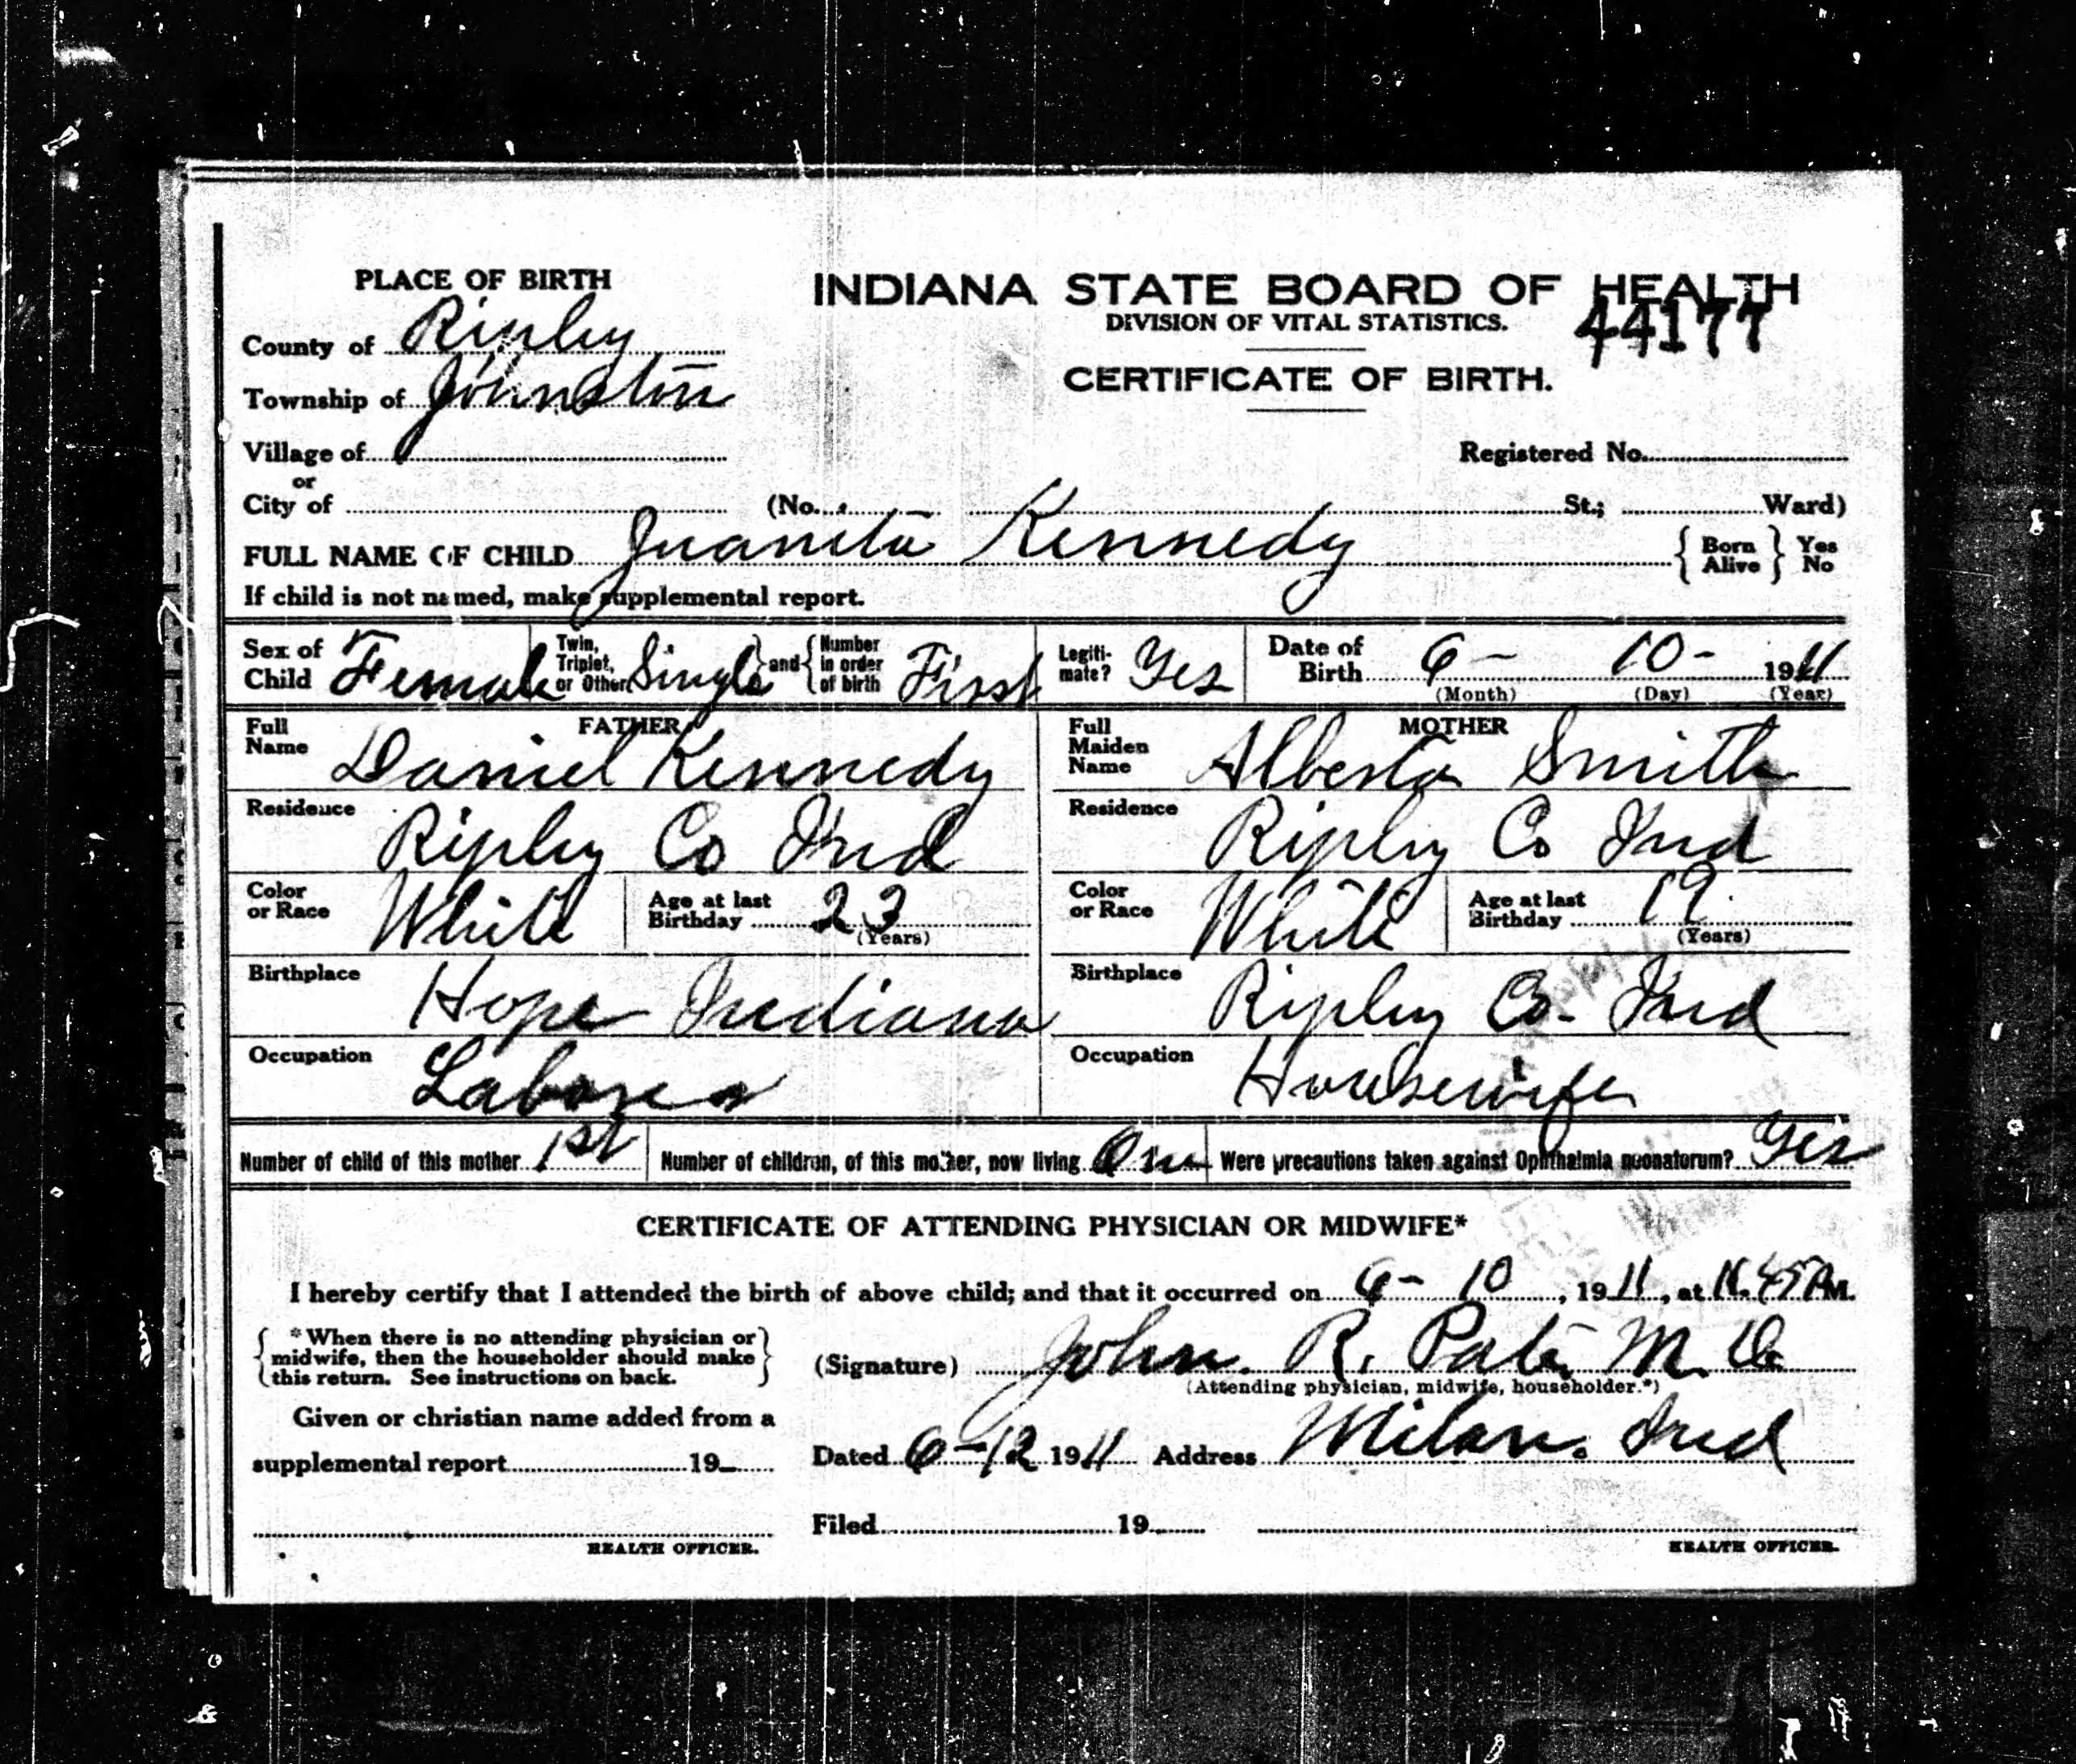 PLACE OF BIRTH
INDIANA STATE BOARD OF HEALTH
DIVISION OF VITAL STATISTICS.
44177
CERTIFICATE OF BIRTH.
County of Ripley
Township of Johnston
Village of
or
City of (No. St.; Ward)
Registered No.
FULL NAME OF CHILD Juanita Kennedy { Born Alive } Yes No
If child is not named, make supplemental report.
Sex of Child Female Twin, Triplet, or Other Single } and { Number in order of birth First Legiti-mate? Yes Date of Birth 6- 10- 1911
(Month) (Day) (Year)
FATHER
Full Name Daniel Kennedy
Residence Ripley Co Ind
Color or Race White Age at last Birthday 23 (Years)
Birthplace Hope Indiana
Occupation Laborer
MOTHER
Full Maiden Name Alberta Smith
Residence Ripley Co Ind
Color or Race White Age at last Birthday 19 (Years)
Birthplace Ripley Co. Ind
Occupation Housewife
Number of child of this mother 1st Number of children, of this mother, now living One Were precautions taken against Ophthalmia neonatorum? Yes
CERTIFICATE OF ATTENDING PHYSICIAN OR MIDWIFE*
I hereby certify that I attended the birth of above child; and that it occurred on 6- 10, 1911, at 11.45 PM.
{ *When there is no attending physician or
midwife, then the householder should make
this return. See instructions on back. }
(Signature) John. R. Pate M. D.
(Attending physician, midwife, householder.*)
Given or christian name added from a
supplemental report 19
Dated 6-12 1911 Address Milan. Ind
Filed 19
HEALTH OFFICER.
HEALTH OFFICER.